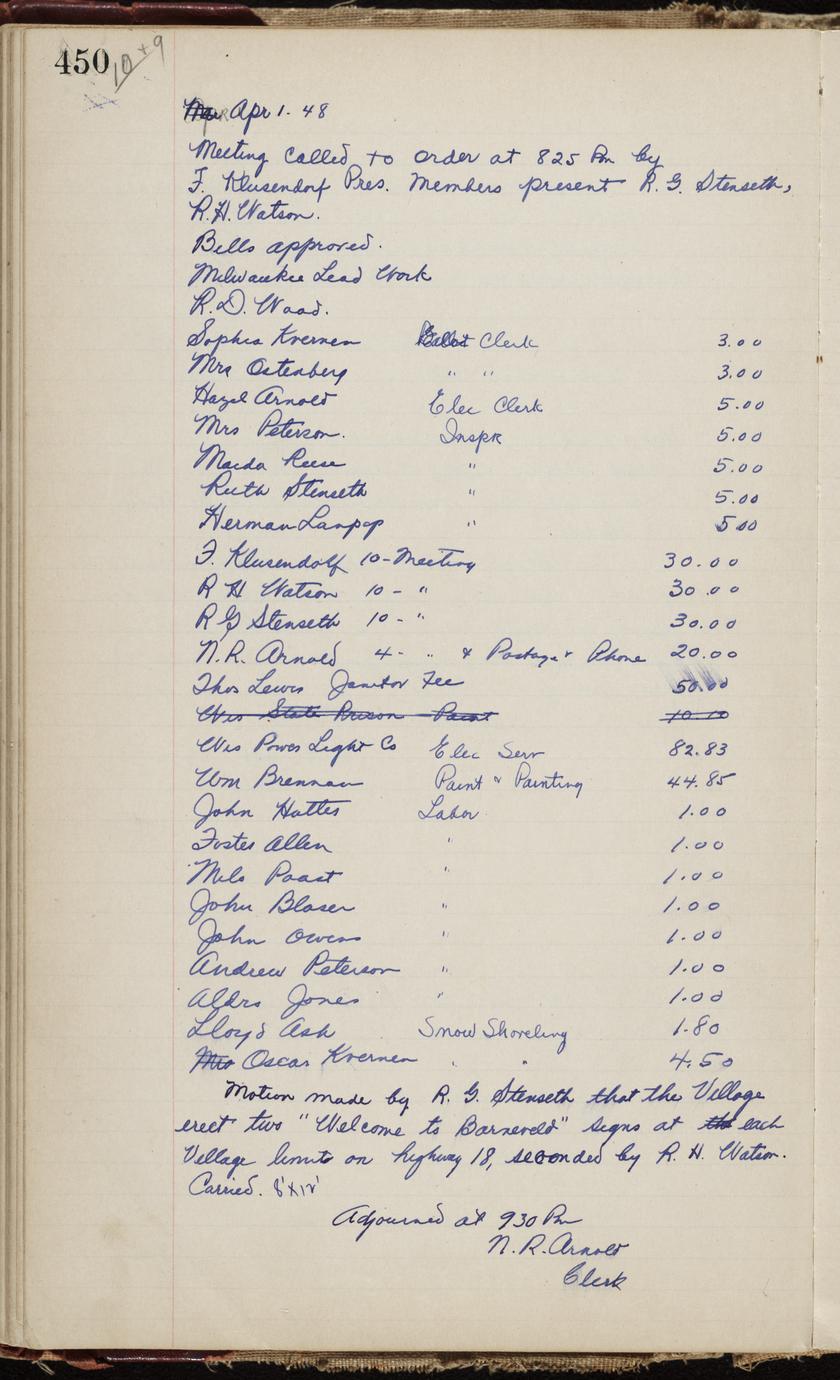 450 10+9
Apr 1. 48
Meeting called to order at 825 Pm by
F. Klusendorf Pres. Members present R. G. Stenseth,
R.H. Watson.
Bills approved.
Milwaukee Lead Work
R.D. Wood.
Sophia Kvernen Ballot Clerk 3.00
Mrs Ostenberg " " 3.00
Hazel Arnold Elec Clerk 5.00
Mrs Peterson. Inspk 5.00
Maida Reese " 5.00
Ruth Stenseth " 5.00
Herman Lampop " 5 00
F. Klusendolf 10 - Meeting 30.00
R H Watson 10 - " 30.00
R G Stenseth 10 - " 30.00
N.R. Arnold 4 - " & Postage & Phone 20.00
Thos Lewis Janitor Fee 50.00
Wis State Prison Paint 10.10
Wis Power Light Co Elec Serv 82.83
Wm Brennan Paint & Painting 44.85
John Hottes Labor 1.00
Foster Allen " 1.00
Milo Paast " 1.00
John Blaser " 1.00
John Owens " 1.00
Andrew Peterson " 1.00
Aldro Jones " 1.00
Lloyd Ash Snow Shoveling 1.80
Mrs Oscar Kvernen " " 4.50
Motion made by R. G. Stenseth that the Village
erect two "Welcome to Barneveld" signs at the each
Village limits on highway 18, seconded by R. H. Watson.
Carried. 8'x12'
Adjourned at 930 Pm
N.R. Arnold
Clerk